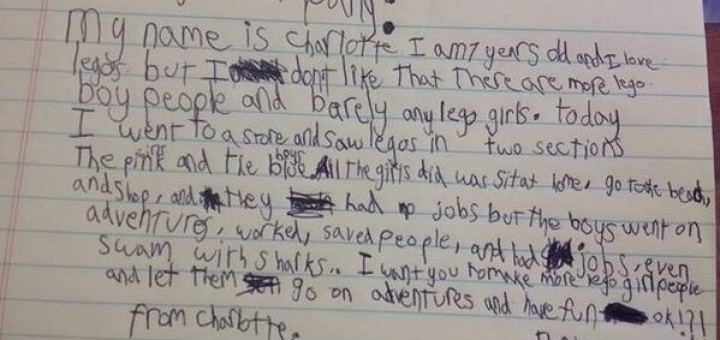 My name is charlotte. I am 7 years old and I love
legos but I don't like that there are more lego
boy people and barely any lego girls. today
I went to a store and saw legos in two sections
The pink girls and the blue boys. All the girls did was sit at home, go to the beach,
and shop, and they had no jobs but the boys went on
adventures, worked, saved people, and had jobs, even
swam with sharks.. I want you to make more lego girl people
and let them go on adventures and have fun ok!?!
from charlotte.